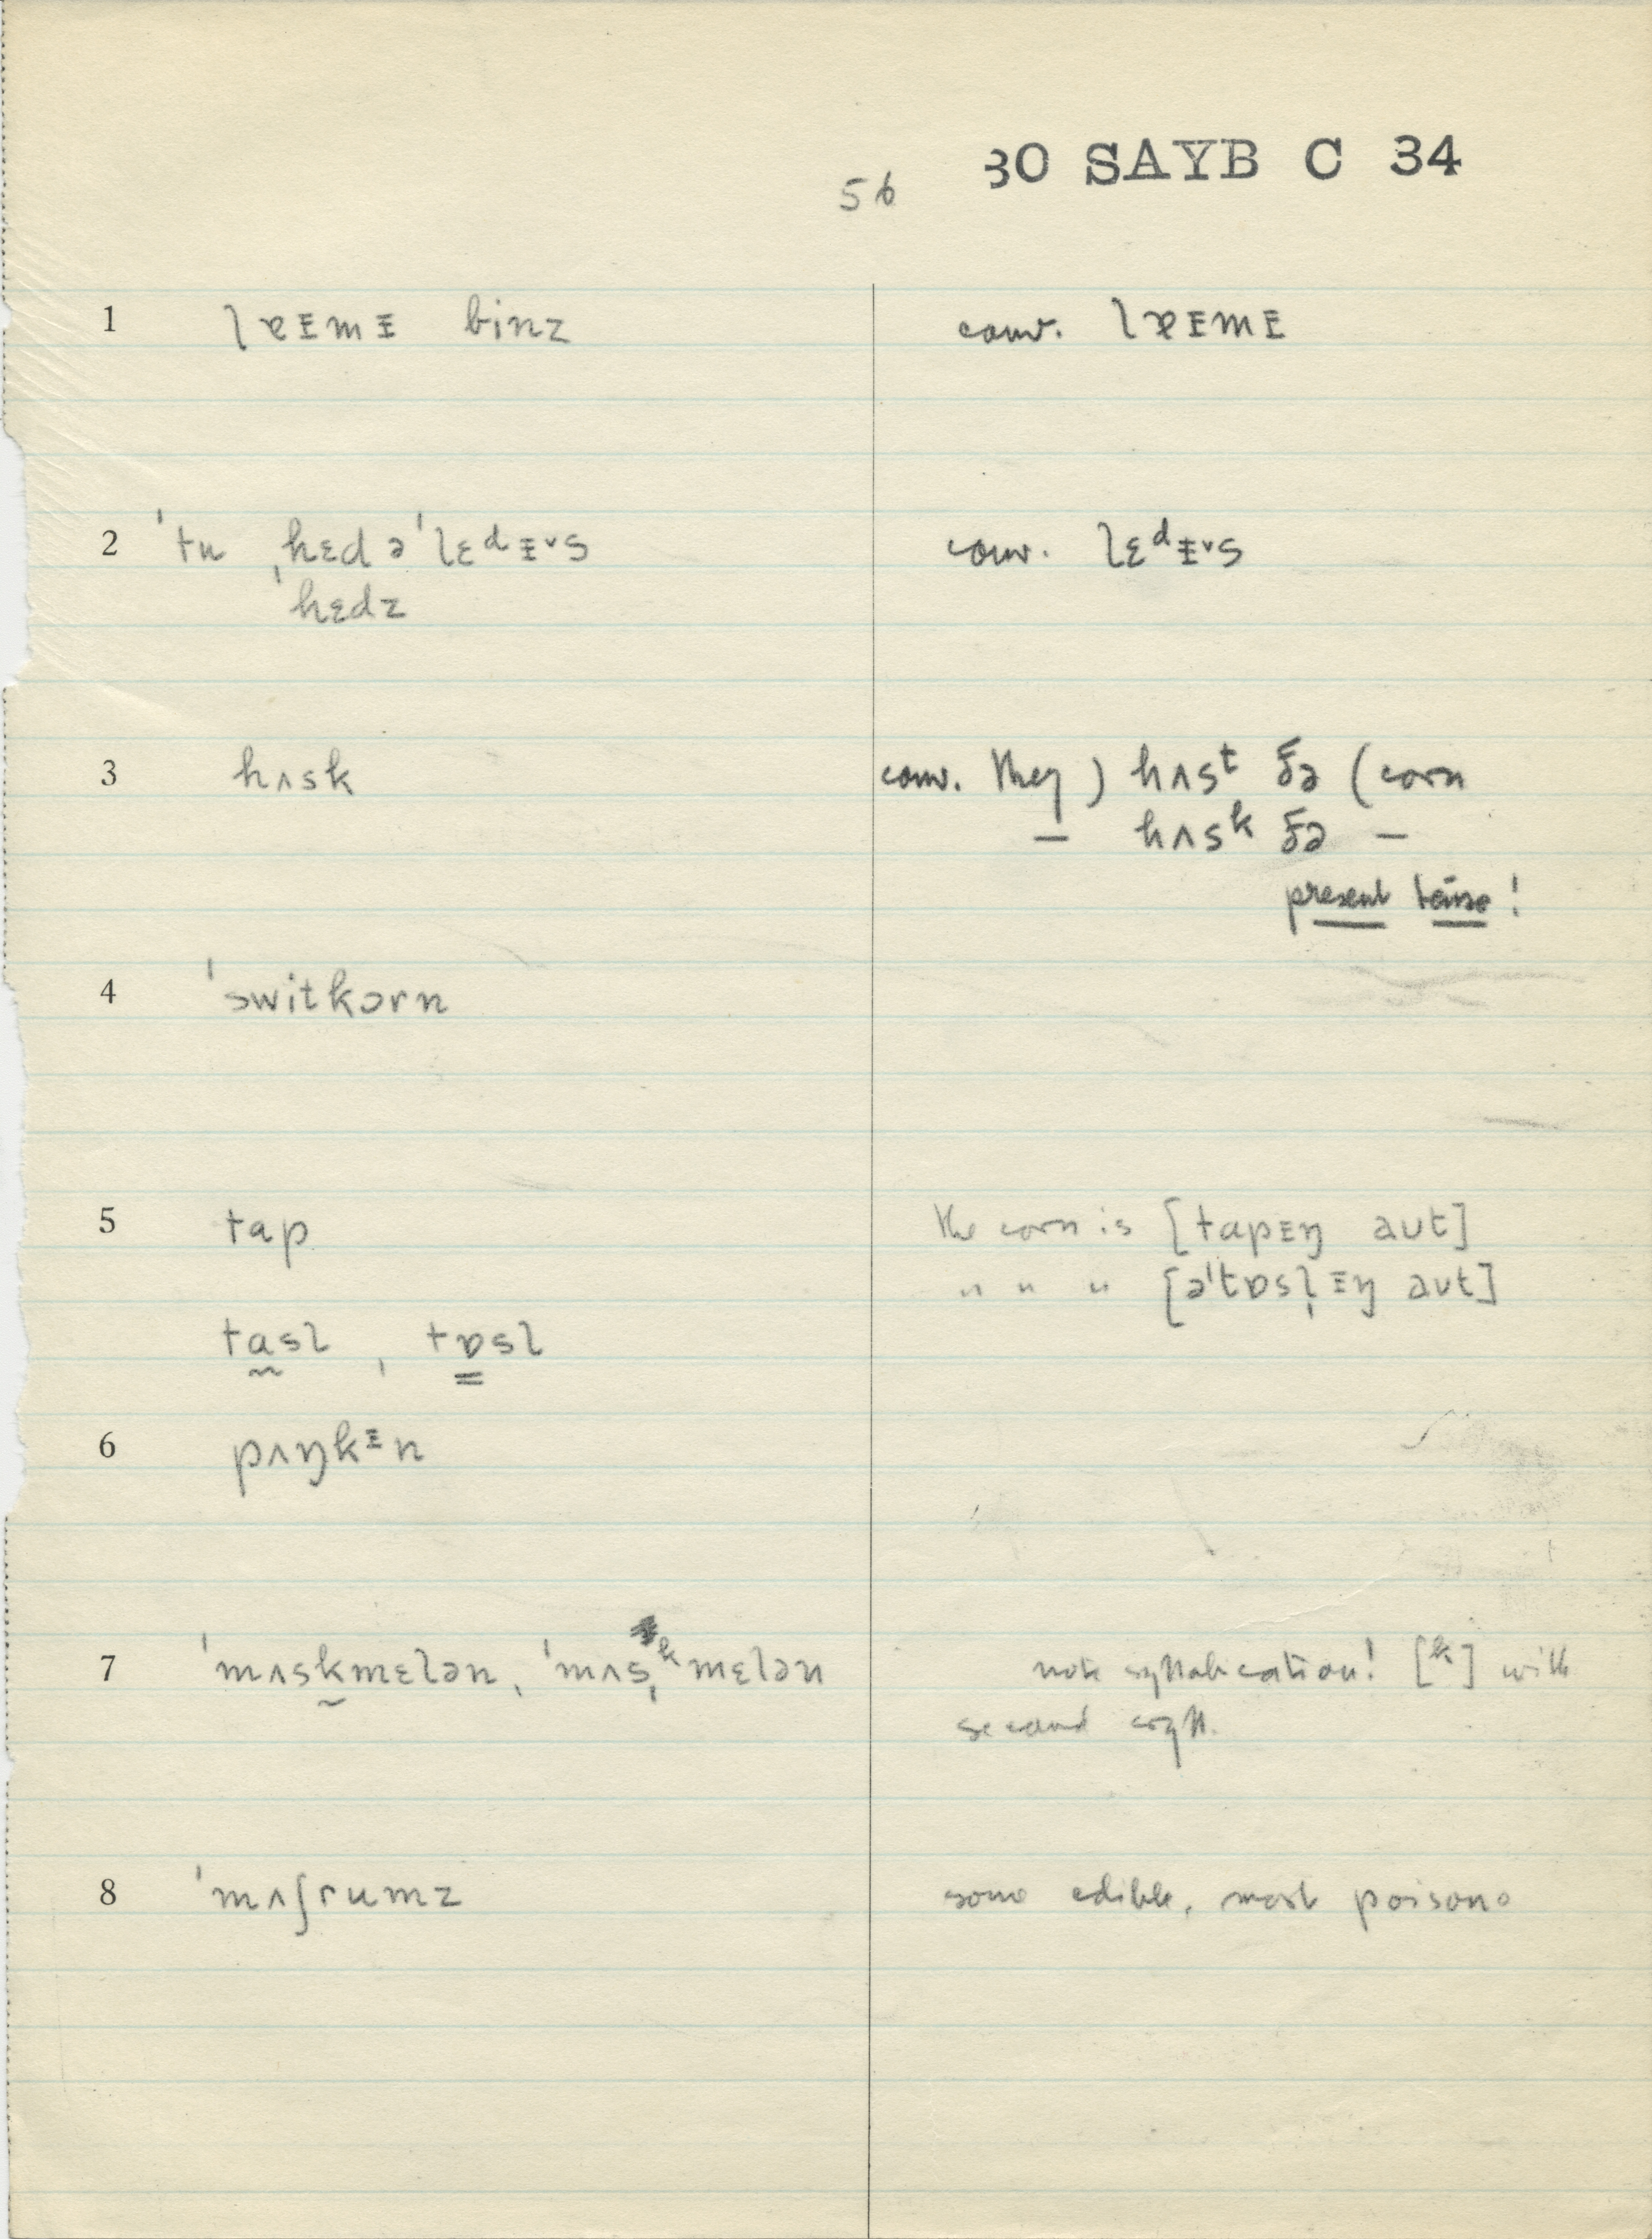 30 SAYB C 34
56
1 lɐᵻmᵻ binz conv. lɐᵻmᵻ
2 ˈtu ˌhɛd əˈlɛᵈᵻᵛs conv. lɛᵈᵻᵛs
ˈhɛdz
3 hʌsk conv. they ) hʌsᵗ ðə (corn
— hʌsᵏ ðə —
present tense!
4 ˈswitkɔrn
5 tap the corn is [tapᵻŋ aʊt]
" " " [əˈtɒsl̩ᵻŋ aʊt]
tasl , tɒsl
6 pʌŋkᵻn
7 ˈmʌskmɛlən, ˈmʌsˌᵏmɛlən note syllabication! [ᵏ] with
second syll.
8 ˈmʌʃrumz some edible, most poisono